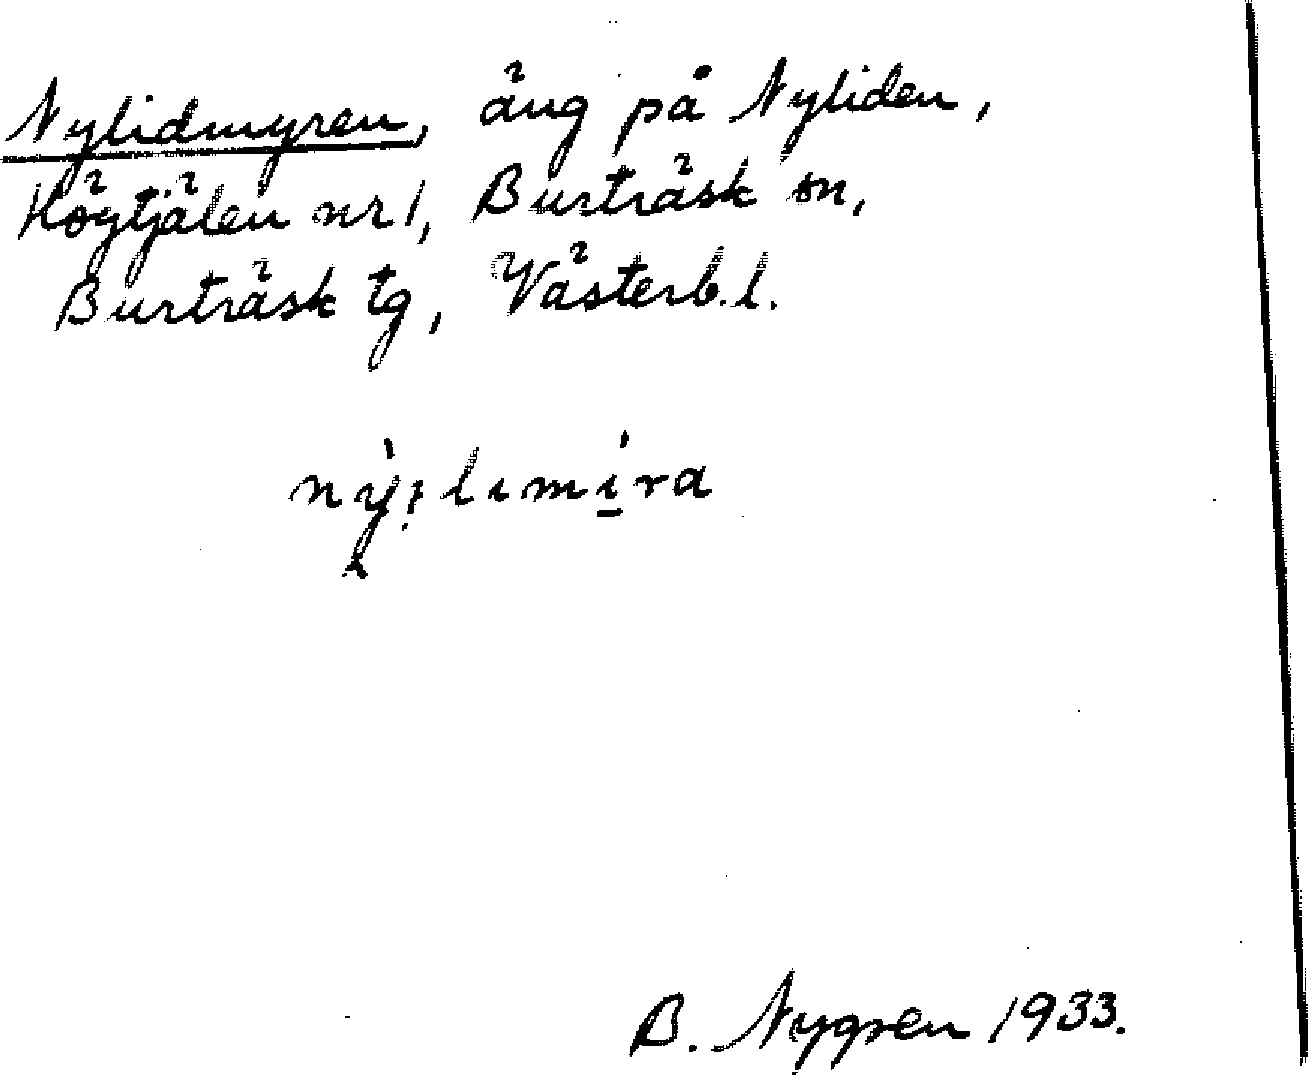 Nylidmyren, äng på Nyliden,
Högtjälen nr 1, Burträsk sn,
Burträsk tg, Västerb. l.
ný:limíra
B. Nygren 1933.